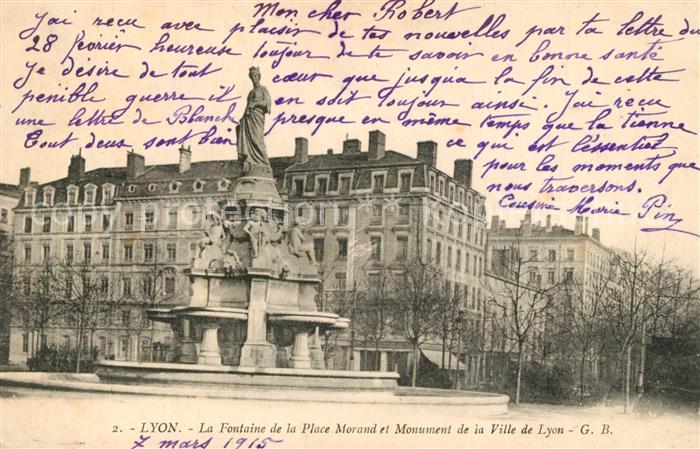 Mon cher Robert
J'ai reçu avec plaisir de tes nouvelles par ta lettre du
28 février heureuse toujour de te savoir en bonne santé
Je désire de tout cœur que jusqua la fin de cette
penible guerre il en soit toujour ainsi. J'ai reçu
une lettre de Blanche presque en même temps que la tienne
tout deux sont bien ce que est l'essentiel
pour les moments que
nous traversons.
Cousine Marie
copyright
2. - LYON. - La Fontaine de la Place Morand et Monument de la Ville de Lyon - G. B.
7 mars 1915